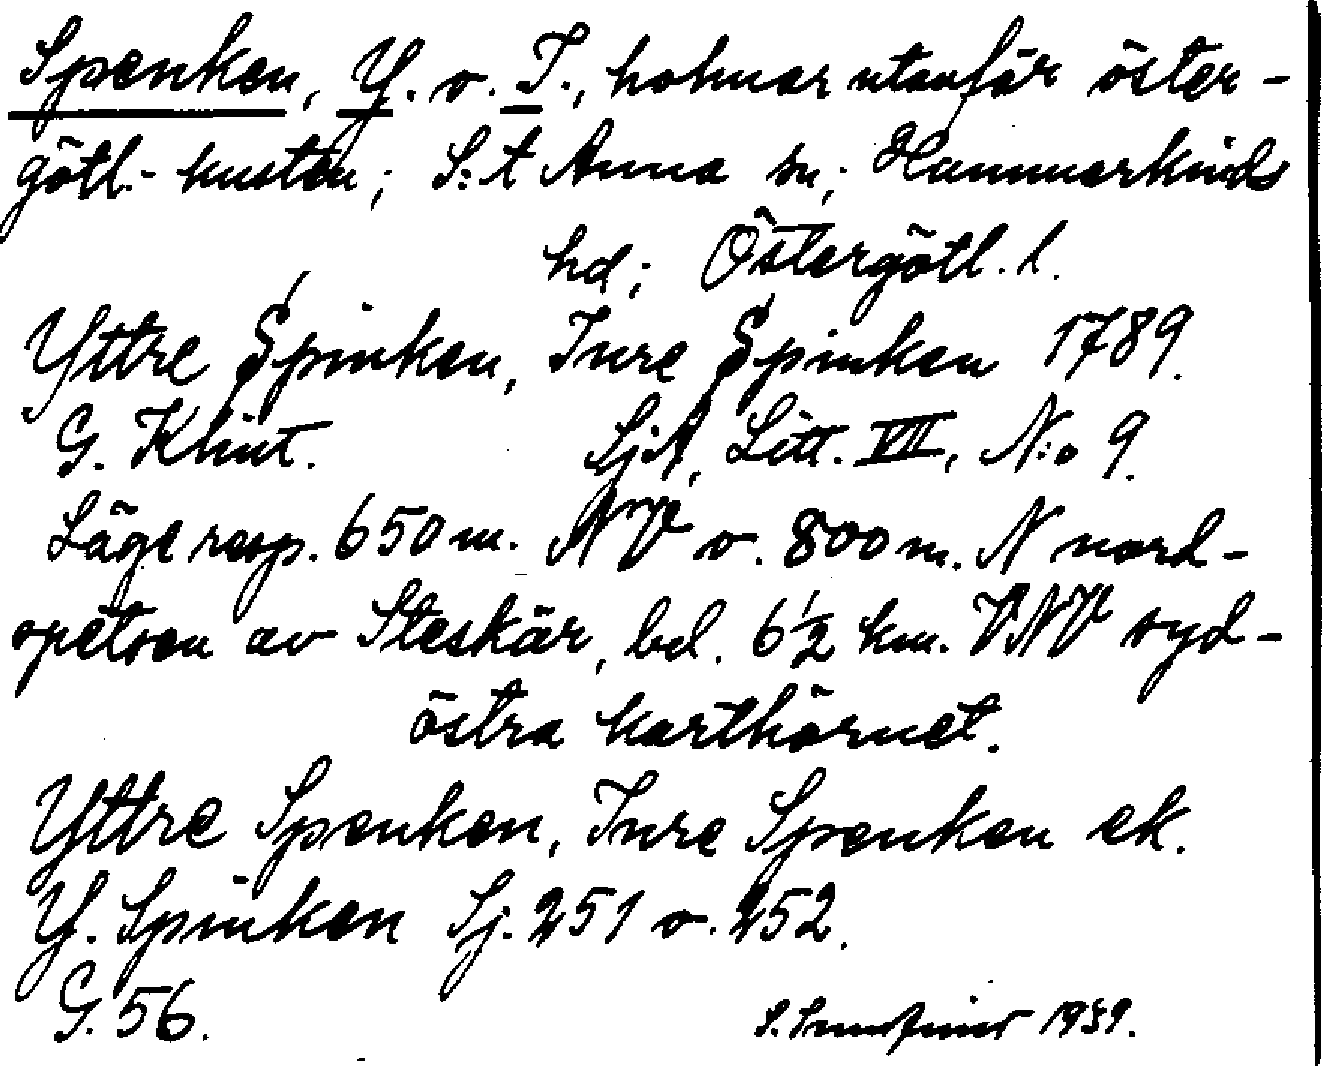 Spenken, Y. o. I., holmar utanför öster-
götl.- kusten; S:t Anna sn; Hammarkinds
hd; Östergötl. l.
Yttre Spinken, Inre Spinken 1789.
G. Klint. SjA, Litt. VII, N:o 9.
Läge resp. 650 m. NV o. 800 m. N nord-
spetsen av Steskär, bel. 6½ km. VNV syd-
östra karthörnet.
Yttre Spenken, Inre Spenken ek.
Y. Spinken Sj. 251 o. 252.
G. 56. S. 1939.